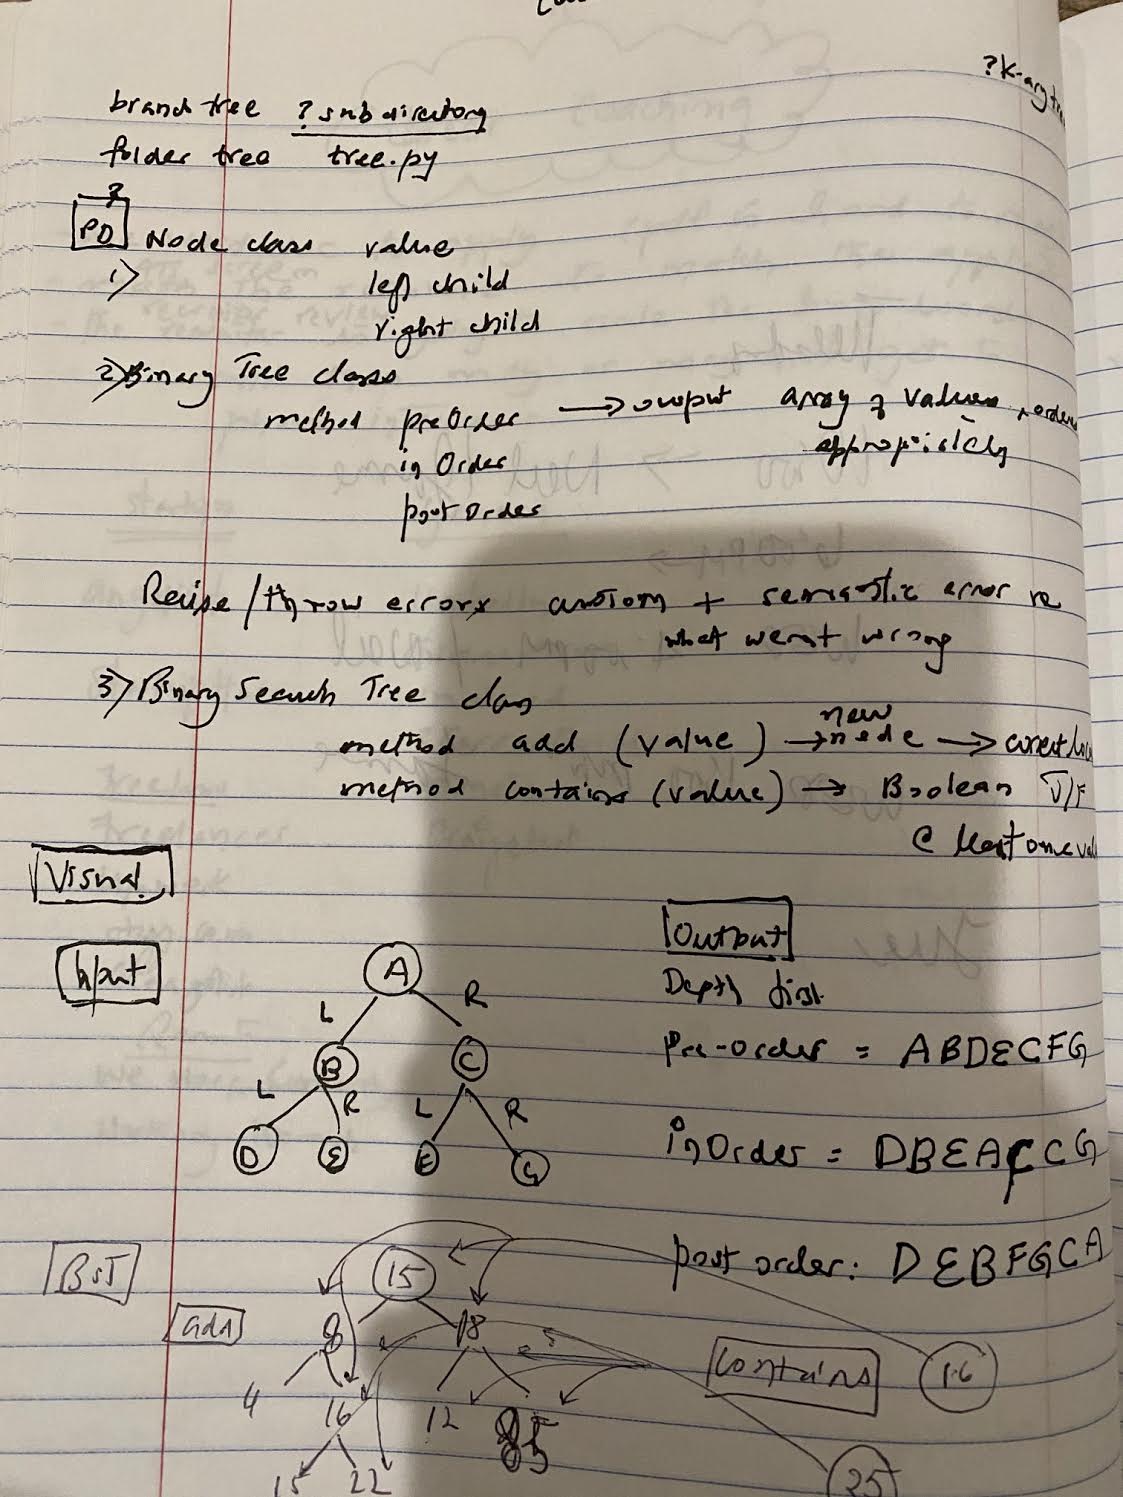 ? K-ary tre
branch tree ? subdirectory
folder tree tree.py
PD Node class value
1) left child
right child
2) Binary Tree class
method preOrder → output array of values, order
inOrder appropriately
postOrder
Raise/throw errors custom + semantic error re
what went wrong
3) Binary Search Tree class
method add (value) → new node → correct loca
method contains (value) → Boolean T/F
@ least one val
Visual
Input
Output
Depth first
A
L R
Pre-order = ABDECFG
B C
L R L R
inOrder = DBEAFCCG
D E F G
post order: DEBFGCA
BST
15
add
8 18
contains 16
4 16 12
15 22
25